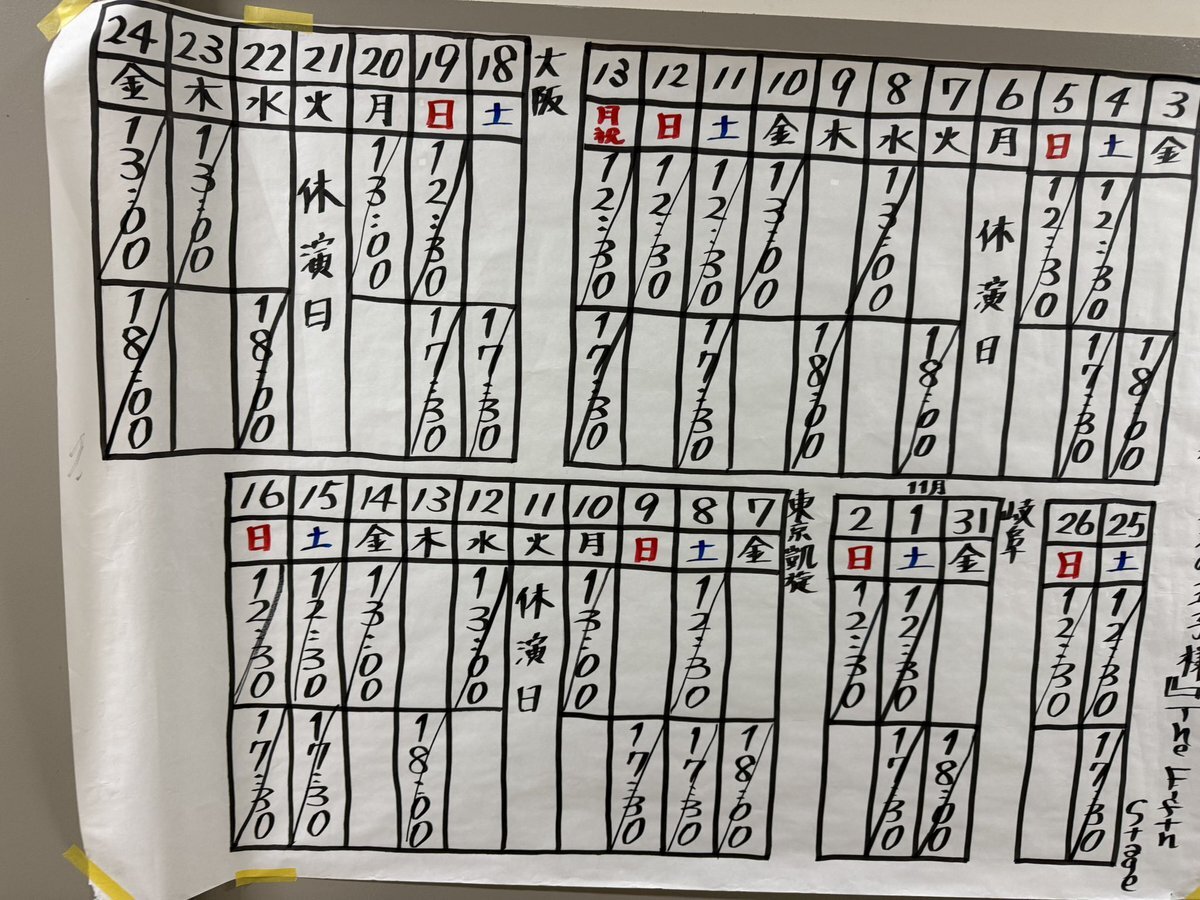 様』The Fifth
Stage
3 金 18:00
4 土 12:30 17:30
5 日 12:30
6 月 休演日
7 火 18:00
8 水 13:00
9 木 18:00
10 金 13:00
11 土 12:30 17:30
12 日 12:30
13 月祝 12:30 17:30
大阪
18 土 17:30
19 日 12:30 17:30
20 月 13:00
21 火 休演日
22 水 18:00
23 木 13:00
24 金 13:00 18:00
25 土 12:30 17:30
26 日 12:30
岐阜
31 金 18:00
11月
1 土 12:30 17:30
2 日 12:30
東京凱旋
7 金 18:00
8 土 12:30 17:30
9 日 17:30
10 月 13:00
11 火 休演日
12 水 13:00
13 木 18:00
14 金 13:00
15 土 12:30 17:30
16 日 12:30 17:30